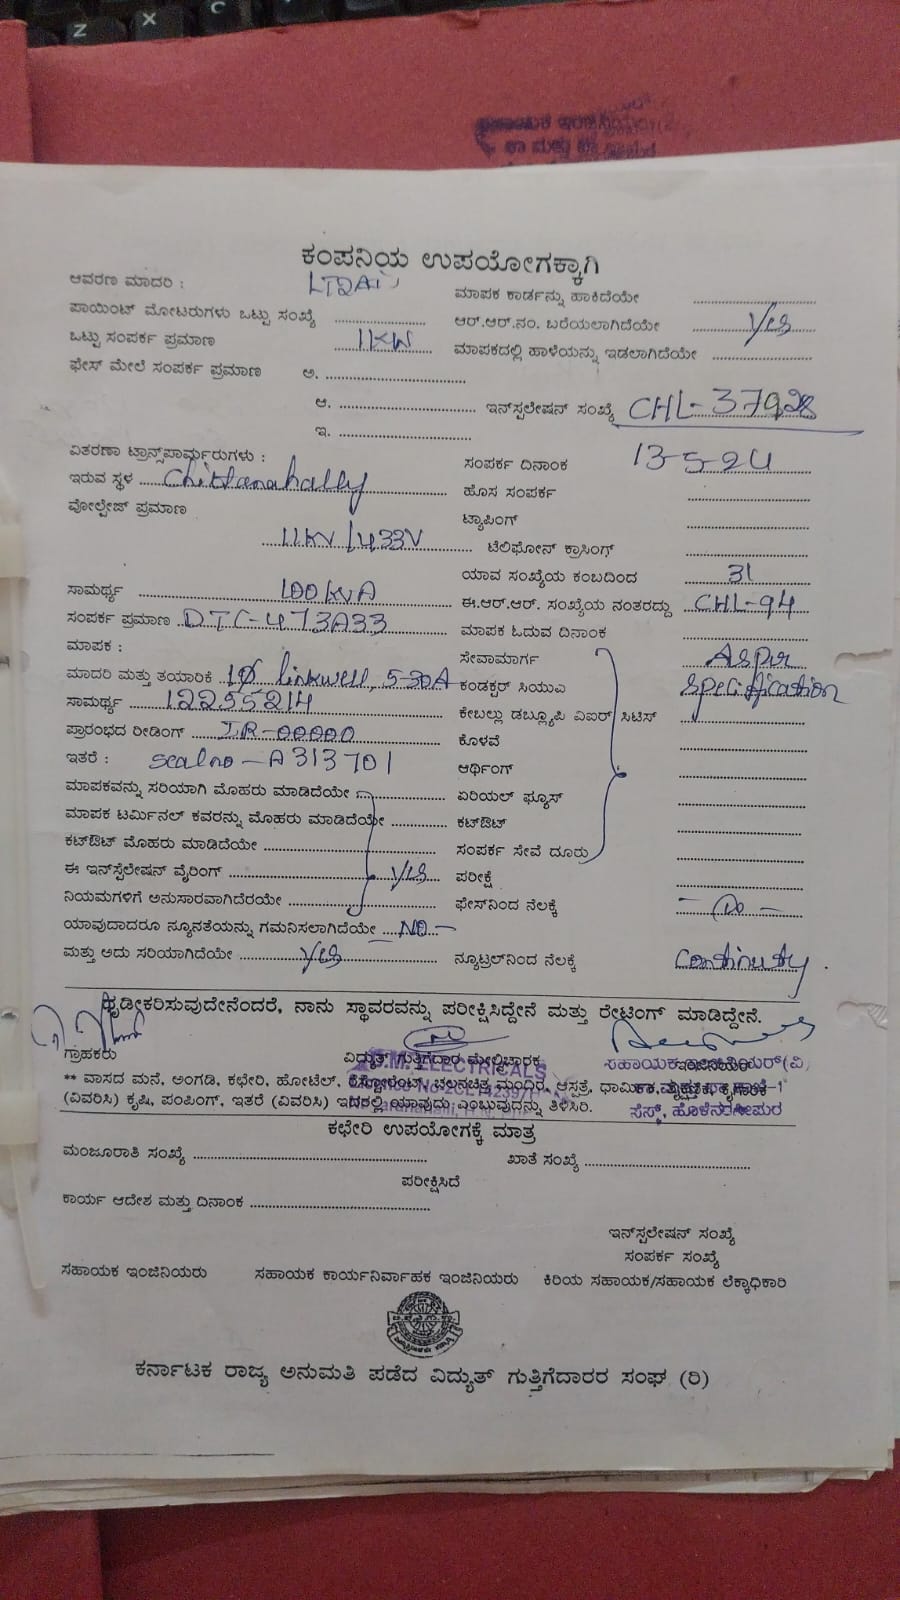 Z X C
ಕಂಪನಿಯ ಉಪಯೋಗಕ್ಕಾಗಿ
ಆವರಣ ಮಾದರಿ : ಮಾಪಕ ಕಾರ್ಡನ್ನು ಹಾಕಿದೆಯೇ
ಪಾಯಿಂಟ್ ಮೋಟರುಗಳು ಒಟ್ಟು ಸಂಖ್ಯೆ ಆರ್.ಆರ್.ನಂ. ಬರೆಯಲಾಗಿದೆಯೇ Yes
ಒಟ್ಟು ಸಂಪರ್ಕ ಪ್ರಮಾಣ 11KW ಮಾಪಕದಲ್ಲಿ ಹಾಳೆಯನ್ನು ಇಡಲಾಗಿದೆಯೇ
ಫೇಸ್ ಮೇಲೆ ಸಂಪರ್ಕ ಪ್ರಮಾಣ ಅ.
ಆ. ಇನ್‌ಸ್ಟಲೇಷನ್ ಸಂಖ್ಯೆ CHL-37928
ಇ.
ವಿತರಣಾ ಟ್ರಾನ್ಸ್‌ಪಾರ್ಮ್ರರುಗಳು : ಸಂಪರ್ಕ ದಿನಾಂಕ 13-5-24
ಇರುವ ಸ್ಥಳ Chittanahally ಹೊಸ ಸಂಪರ್ಕ
ವೋಲ್ಟೇಜ್ ಪ್ರಮಾಣ ಟ್ಯಾಪಿಂಗ್
11KV/433V ಟೆಲಿಫೋನ್ ಕ್ರಾಸಿಂಗ್
ಯಾವ ಸಂಖ್ಯೆಯ ಕಂಬದಿಂದ 31
ಸಾಮರ್ಥ್ಯ 100KVA ಈ.ಆರ್.ಆರ್. ಸಂಖ್ಯೆಯ ನಂತರದ್ದು CHL-94
ಸಂಪರ್ಕ ಪ್ರಮಾಣ DTC-473A33 ಮಾಪಕ ಓದುವ ದಿನಾಂಕ
ಮಾಪಕ : ಸೇವಾಮಾರ್ಗ Asper
ಮಾದರಿ ಮತ್ತು ತಯಾರಿಕೆ 1Ø linkwell, 5-30A ಕಂಡಕ್ಟರ್ ಸಿಯುವಿ Specification
ಸಾಮರ್ಥ್ಯ 12255214 ಕೇಬಲ್ಲು ಡಬ್ಲ್ಯೂಪಿ ವಿಐಆರ್ ಸಿಟಿಸ್
ಪ್ರಾರಂಭದ ರೀಡಿಂಗ್ IR-00000 ಕೊಳವೆ
ಇತರೆ : sealno-A313701 ಆರ್ಥಿಂಗ್
ಮಾಪಕವನ್ನು ಸರಿಯಾಗಿ ಮೊಹರು ಮಾಡಿದೆಯೇ ಏರಿಯಲ್ ಫ್ಯೂಸ್
ಮಾಪಕ ಟರ್ಮಿನಲ್ ಕವರನ್ನು ಮೊಹರು ಮಾಡಿದೆಯೇ ಕಟ್‌ಔಟ್
ಕಟ್‌ಔಟ್ ಮೊಹರು ಮಾಡಿದೆಯೇ ಸಂಪರ್ಕ ಸೇವೆ ದೂರು
ಈ ಇನ್‌ಸ್ಟೆಲೇಷನ್ ವೈರಿಂಗ್ Yes ಪರೀಕ್ಷೆ
ನಿಯಮಗಳಿಗೆ ಅನುಸಾರವಾಗಿದೆರಯೇ ಫೇಸ್‌ನಿಂದ ನೆಲಕ್ಕೆ
ಯಾವುದಾದರೂ ನ್ಯೂನತೆಯನ್ನು ಗಮನಿಸಲಾಗಿದೆಯೇ NO
ಮತ್ತು ಅದು ಸರಿಯಾಗಿದೆಯೇ Yes ನ್ಯೂಟ್ರಲ್‌ನಿಂದ ನೆಲಕ್ಕೆ Continuity.
ದೃಡೀಕರಿಸುವುದೇನೆಂದರೆ, ನಾನು ಸ್ಥಾವರವನ್ನು ಪರೀಕ್ಷಿಸಿದ್ದೇನೆ ಮತ್ತು ರೇಟಿಂಗ್ ಮಾಡಿದ್ದೇನೆ.
ಗ್ರಾಹಕರು ವಿದ್ಯುತ್ ಗುತ್ತಿಗೆದಾರ ಮೇಲ್ವಿಚಾರಕ
ELECTRICALS
** ವಾಸದ ಮನೆ, ಅಂಗಡಿ, ಕಛೇರಿ, ಹೋಟೆಲ್, ರೆಸ್ಟೋರೆಂಟ್, ಚಲನಚಿತ್ರ ಮಂದಿರ, ಆಸ್ಪತ್ರೆ, ಧಾರ್ಮಿಕ
(ವಿವರಿಸಿ) ಕೃಷಿ, ಪಂಪಿಂಗ್, ಇತರೆ (ವಿವರಿಸಿ) ಇದರಲ್ಲಿ ಯಾವುದು ಎಂಬುವುದನ್ನು ತಿಳಿಸಿರಿ.
ಕಛೇರಿ ಉಪಯೋಗಕ್ಕೆ ಮಾತ್ರ
ಮಂಜೂರಾತಿ ಸಂಖ್ಯೆ ಖಾತೆ ಸಂಖ್ಯೆ
ಪರೀಕ್ಷಿಸಿದೆ
ಕಾರ್ಯ ಆದೇಶ ಮತ್ತು ದಿನಾಂಕ
ಇನ್‌ಸ್ಟಲೇಷನ್ ಸಂಖ್ಯೆ
ಸಂಪರ್ಕ ಸಂಖ್ಯೆ
ಸಹಾಯಕ ಇಂಜಿನಿಯರು ಸಹಾಯಕ ಕಾರ್ಯನಿರ್ವಾಹಕ ಇಂಜಿನಿಯರು ಕಿರಿಯ ಸಹಾಯಕ/ಸಹಾಯಕ ಲೆಕ್ಕಾಧಿಕಾರಿ
ಕರ್ನಾಟಕ ರಾಜ್ಯ ಅನುಮತಿ ಪಡೆದ ವಿದ್ಯುತ್ ಗುತ್ತಿಗೆದಾರರ ಸಂಘ (ರಿ)